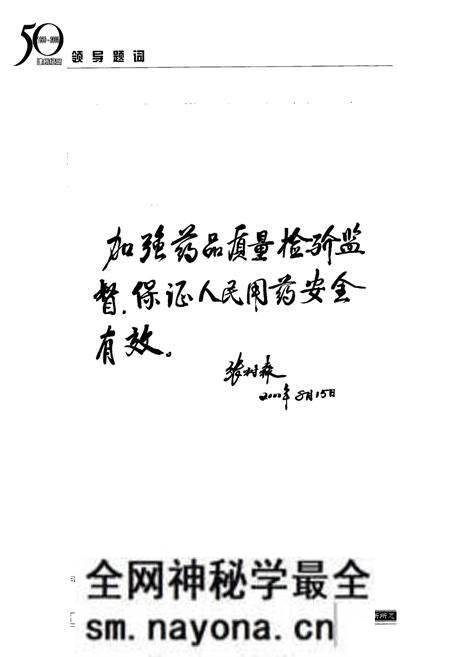 50
领导题词
加强药品质量检验监
督，保证人民用药安全
有效。
张村森
2000年8月15日
全网神秘学最全
sm.nayona.cn